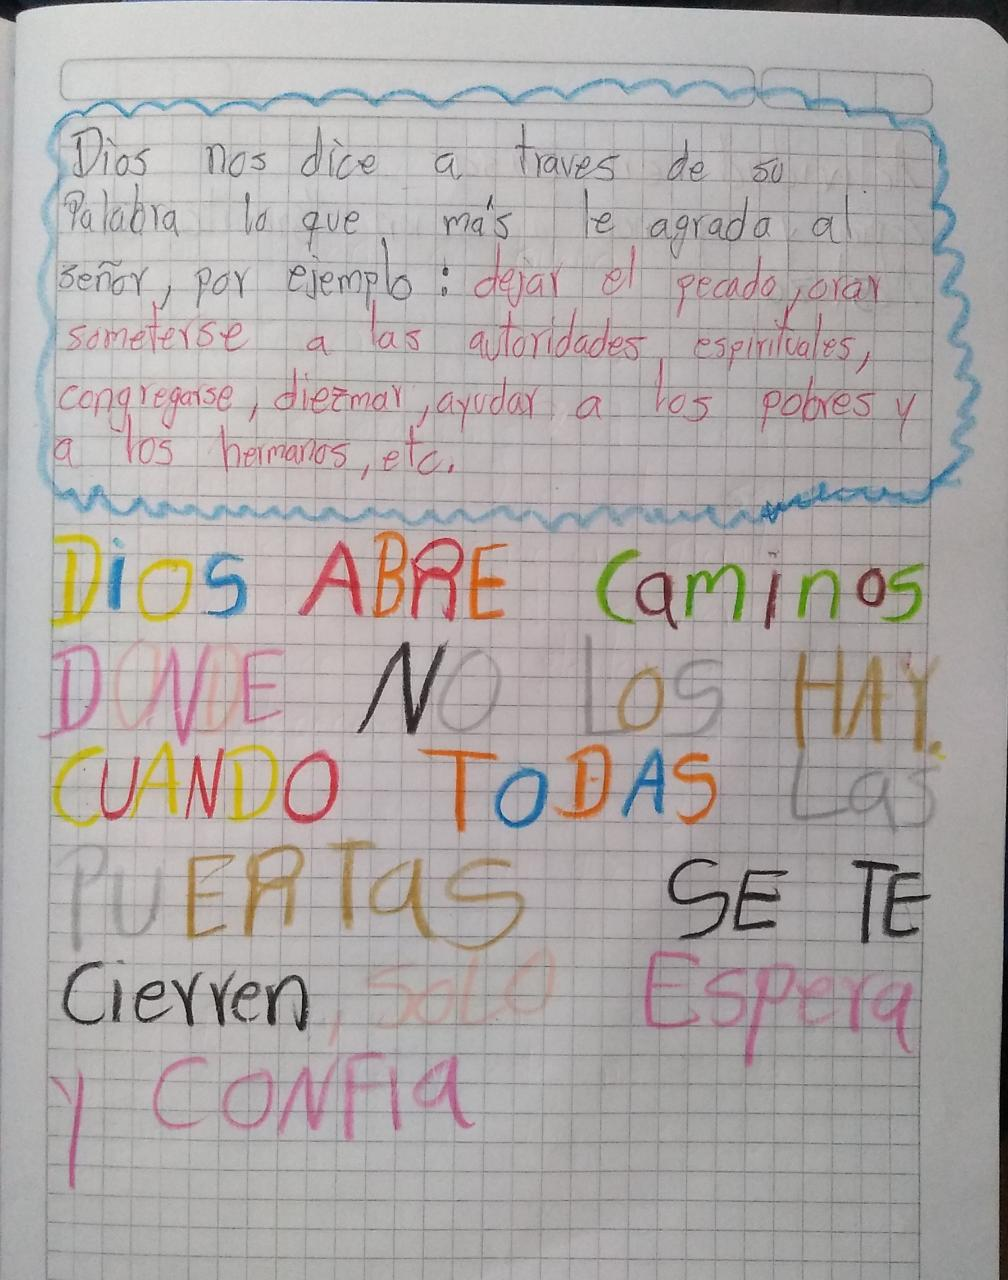 Dios nos dice a traves de su
Palabra lo que más le agrada al
señor, por ejemplo: dejar el pecado, orar
someterse a las autoridades espirituales,
congregarse, diezmar, ayudar a los pobres y
a los hermanos, etc.
Dios ABRE Caminos
DONDE NO LOS HAY.
CUANDO TODAS Las
PUERTas SE TE
Cierren, SOLO Espera
Y CONFIa